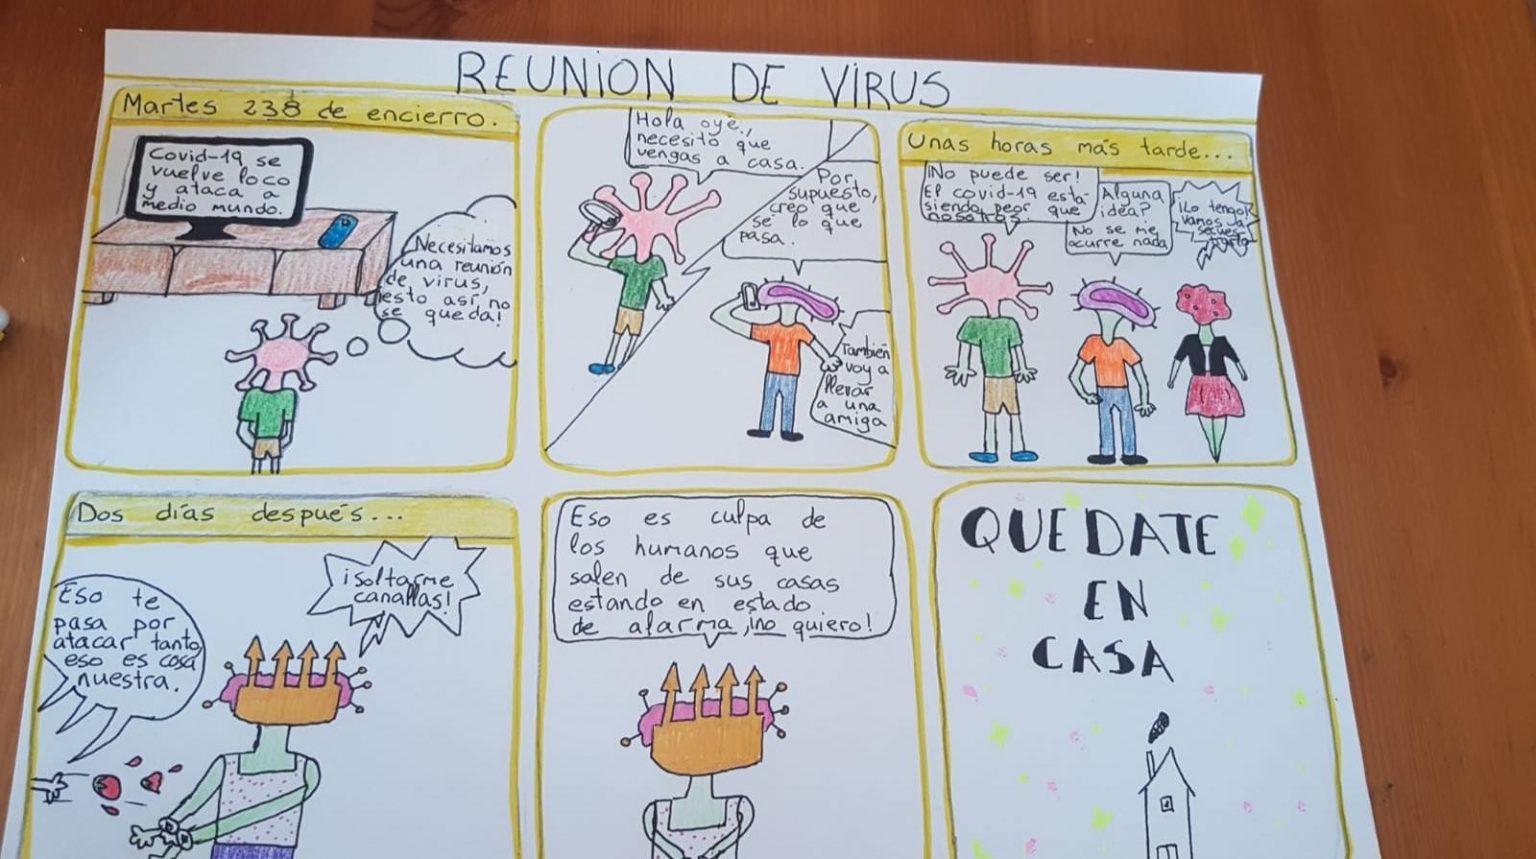 REUNION DE VIRUS
Martes 238 de encierro.
Covid-19 se
vuelve loco
y ataca a
medio mundo.
Necesitamos
una reunión
de virus,
¡esto así no
se queda!
Hola oye,
necesito que
vengas a casa.
Por
supuesto,
creo que
se lo que
pasa.
También
voy a
llevar
a una
amiga
Unas horas más tarde...
¡No puede ser!
El covid-19 está
siendo peor que
nosotros.
Alguna
idea?
No se me
ocurre nada
¡Lo tengo!
Vamos a
Dos días después...
Eso te
pasa por
atacar tanto,
eso es cosa
nuestra.
¡Soltarme
canallas!
Eso es culpa de
los humanos que
salen de sus casas
estando en estado
de alarma, ¡no quiero!
QUEDATE
EN
CASA